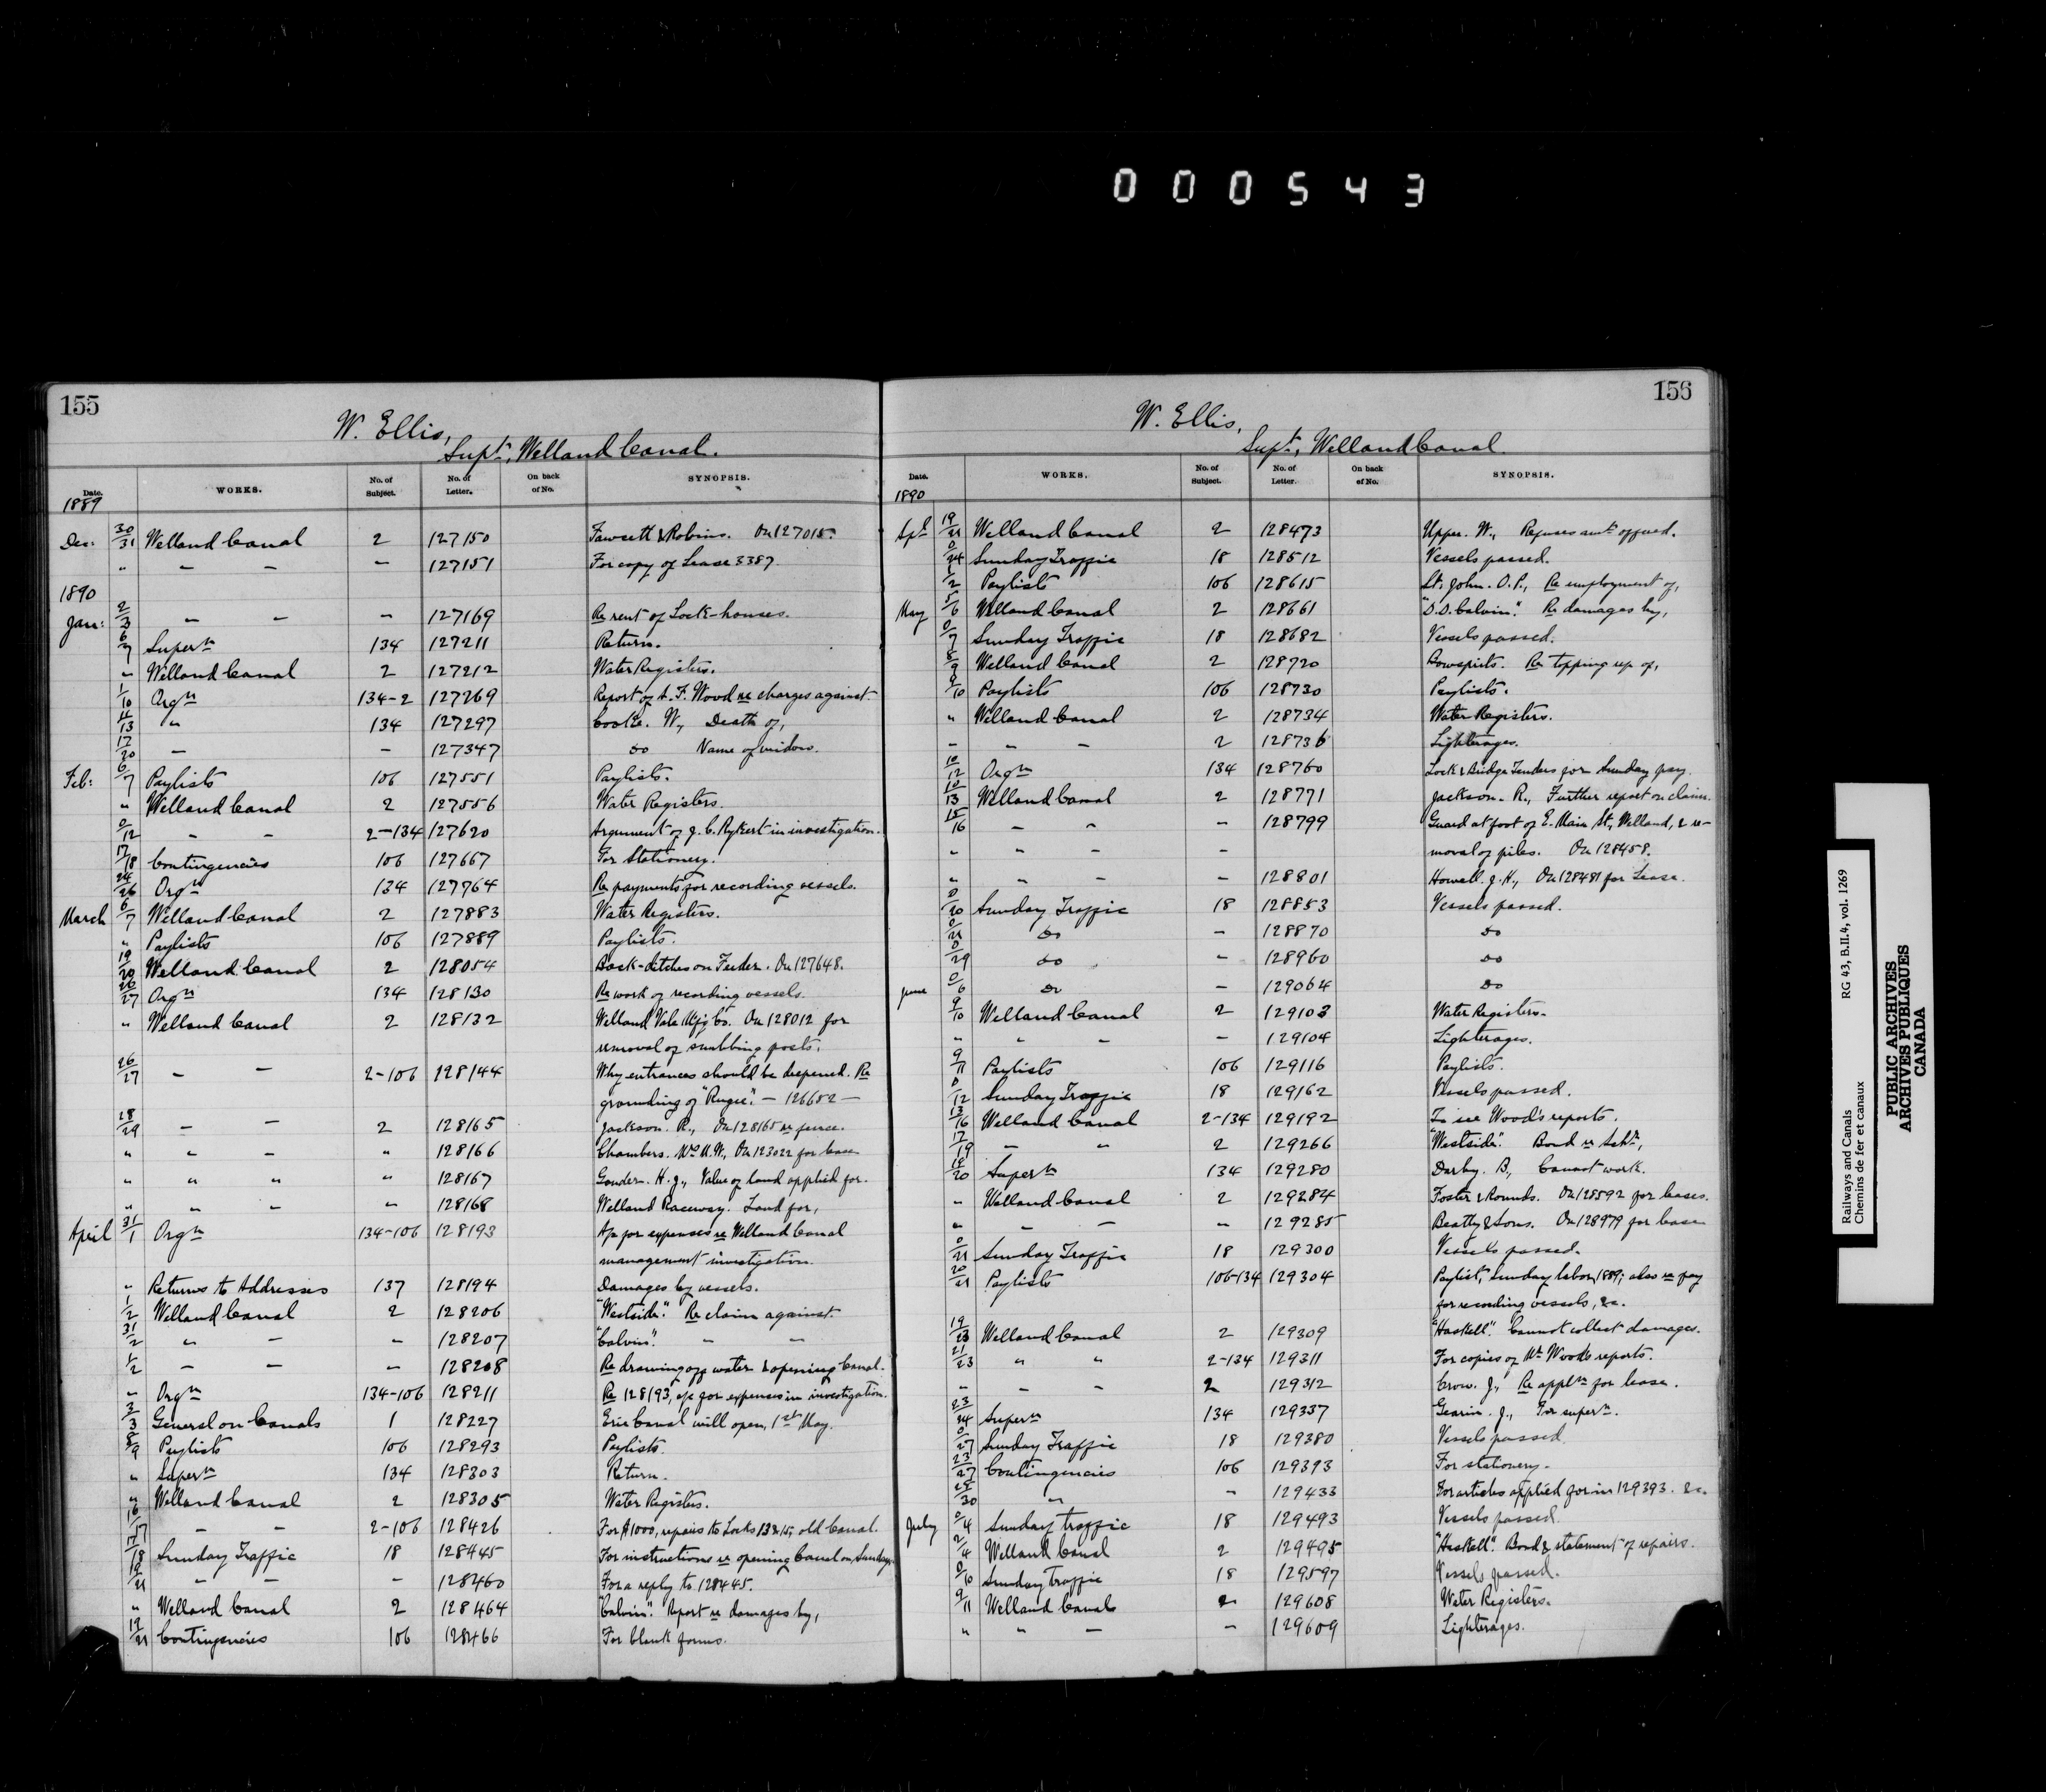 000543
155
W. Ellis,
Supt, Welland Canal.
Date. WORKS. No. of Subject. No. of Letter. On back of No. SYNOPSIS.
1889
Dec. 30/31 Welland Canal 2 127150 Fawcett & Robins. On 127015.
" - - - 127151 For copy of Lease 3387.
1890
Jan: 2/3 " - - 127169 Re rent of Lock-houses.
6/7 Supern 134 127211 Return.
" Welland Canal 2 127212 Water Registers.
1/10 Orgn 134-2 127269 Report of A. F. Wood re charges against
11/13 " 134 127297 Cooke. W., Death of,
17/20 - - 127347 do Name of widow.
Feb: 6/7 Paylists 106 127551 Paylists.
" Welland Canal 2 127556 Water Registers.
0/12 - - 2-134 127620 Argument of J. C. Rykert in investigation.
17/18 Contingencies 106 127667 For Stationery.
24/26 Orgn 134 127764 Re payments for recording vessels.
March 6/7 Welland Canal 2 127883 Water Registers.
" Paylists 106 127889 Paylists.
19/20 Welland Canal 2 128054 Back-ditches on Feeder. On 127648.
26/27 Orgn 134 128130 Re work of recording vessels.
" Welland Canal 2 128132 Welland Vale Mfg Co. On 128012 for
removal of snubbing posts.
26/27 - - 2-106 128144 Why entrances should be deepened. Re
grounding of "Rugee". - 126652 -
28/29 - - 2 128165 Jackson. R., On 128165 re fence.
" " - " 128166 Chambers. Mrs M. W., On 123022 for lease
" " " " 128167 Gonder. H. J., Value of land applied for.
" " - - 128168 Welland Raceway. Land for,
April 31/1 Orgn 134-106 128193 A/c for expenses re Welland Canal
management investigation.
" Returns to Addresses 137 128194 Damages by vessels.
1/2 Welland Canal 2 128206 "Westside". Re claim against
31/2 " - " 128207 "Calvin". " "
1/2 - - - 128208 Re drawing off water & opening Canal.
" Orgn 134-106 128211 Re 128193, a/c for expenses in investigation.
2/3 General on Canals 1 128227 Erie Canal will open, 1st May.
8/9 Paylists 106 128293 Paylists.
" Supern 134 128303 Return.
" Welland Canal 2 128305 Water Registers.
16/17 - - 2-106 128426 For $1000, repairs to Locks 13 & 15, old Canal.
17/18 Sunday Traffic 18 128445 For instructions re opening Canal on Sunday.
19/21 - - - 128460 For a reply to 128445.
" Welland Canal 2 128464 "Calvin". Report re damages by,
19/21 Contingencies 106 128466 For blank forms.
156
W. Ellis,
Supt, Welland Canal.
Date. WORKS. No. of Subject. No. of Letter. On back of No. SYNOPSIS.
1890
Apl 19/21 Welland Canal 2 128473 Upper. W., Refuses amt offered.
0/24 Sunday Traffic 18 128512 Vessels passed.
1/2 Paylist 106 128615 St. John. O. P., Re employment of,
May 5/6 Welland Canal 2 128661 "D. D. Calvin". Re damages by,
0/7 Sunday Traffic 18 128682 Vessels passed.
8/9 Welland Canal 2 128720 Bowsprits. Re topping up of,
9/10 Paylists 106 128730 Paylists.
" Welland Canal 2 128734 Water Registers.
- " - 2 128736 Lighterages.
10/12 Orgn 134 128760 Lock & Bridge Tenders for Sunday pay.
10/13 Welland Canal 2 128771 Jackson. R., Further report on claim.
15/16 - " - 128799 Guard at foot of E. Main St, Welland, & re-
" " - - moval of piles. On 128458.
" - - - 128801 Howell. J. H., On 128481 for Lease.
0/20 Sunday Traffic 18 128853 Vessels passed.
0/21 do - 128870 do
0/29 do - 128960 do
June 0/6 do - 129064 do
9/10 Welland Canal 2 129103 Water Registers.
" " - - 129104 Lighterages.
9/11 Paylists 106 129116 Paylists.
0/12 Sunday Traffic 18 129162 Vessels passed.
13/16 Welland Canal 2-134 129192 To see Wood's reports.
17/19 - " 2 129266 "Westside". Bond re
19/20 Supern 134 129280 Darby. B., Cannot work.
" Welland Canal 2 129284 Foster & Rounds. On 128592 for leases.
" - - " 129285 Beatty & Sons. On 128979 for lease
0/21 Sunday Traffic 18 129300 Vessels passed.
20/21 Paylists 106-134 129304 Paylist, Sunday labor, 1889; also re pay
for recording vessels, &c.
19/23 Welland Canal 2 129309 "Haskell". Cannot collect damages.
21/23 " " 2-134 129311 For copies of Mr Wood's reports.
- - - 2 129312 Crow. J., Re appln for lease.
23/24 Supern 134 129337 Gearin. J., For supern.
0/27 Sunday Traffic 18 129380 Vessels passed.
23/27 Contingencies 106 129393 For stationery.
28/30 " - 129433 For articles applied for in 129393. &c.
July 0/4 Sunday traffic 18 129493 Vessels passed.
2/4 Welland Canal 2 129495 "Haskell". Bond & statement of repairs.
0/10 Sunday traffic 18 129597 Vessels passed.
9/11 Welland Canals 2 129608 Water Registers.
" " - - 129609 Lighterages.
Railways and Canals RG 43, B.II.4, vol. 1269
Chemins de fer et canaux
PUBLIC ARCHIVES
ARCHIVES PUBLIQUES
CANADA